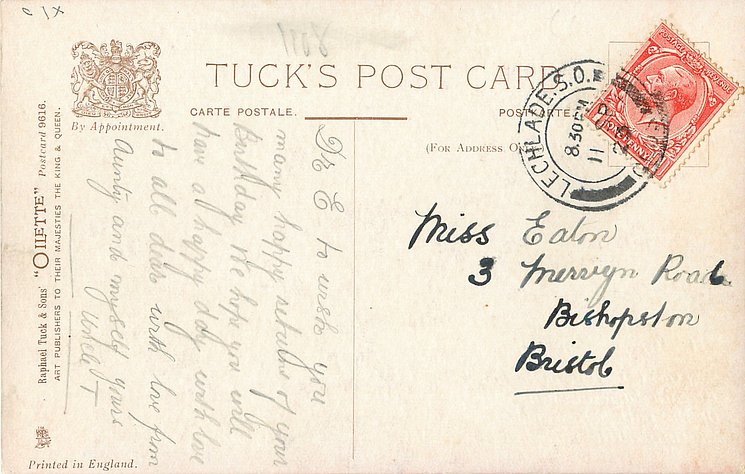 TUCK'S POST CARD
CARTE POSTALE.
POSTKARTE.
(FOR ADDRESS ON
By Appointment.
LECHLADE. S.O.
8.30 PM
11
Miss Eaton
3 Mervyn Road
Bishopston
Bristol
Dr E to wish you
many happy returns of your
Birthday We hope you will
have a happy day with love
to all also with love from
Aunty and myself yours
Uncle T
Raphael Tuck & Sons' "OILETTE" Postcard 9616.
ART PUBLISHERS TO THEIR MAJESTIES THE KING & QUEEN.
Printed in England.